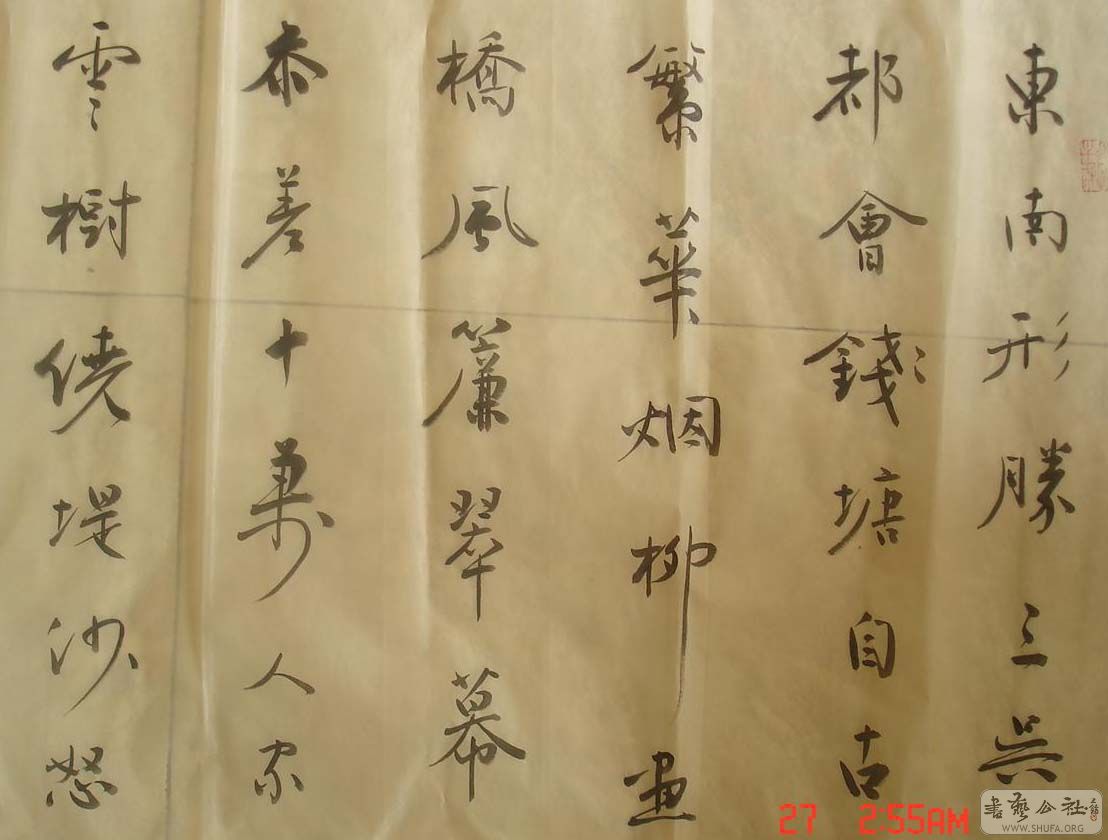 東南形勝三吳
都會錢塘自古
繁華烟柳畫
橋風簾翠幕
參差十萬人家
雲樹繞堤沙怒
27 2:55AM
書藝公社
WWW.SHUFA.ORG